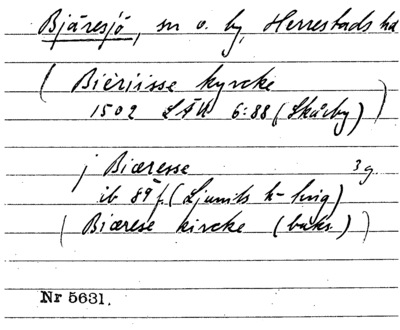 Bjäresjö, sn o. by, Herrestads hd
( Biėriisse kyrcke
1502 LÄU 6:88 (Skårby) )
j Biæresse 3 g.
ib 89 f. (Ljunits h- ting)
( Biærese kircke (baks.) )
Nr 5631.